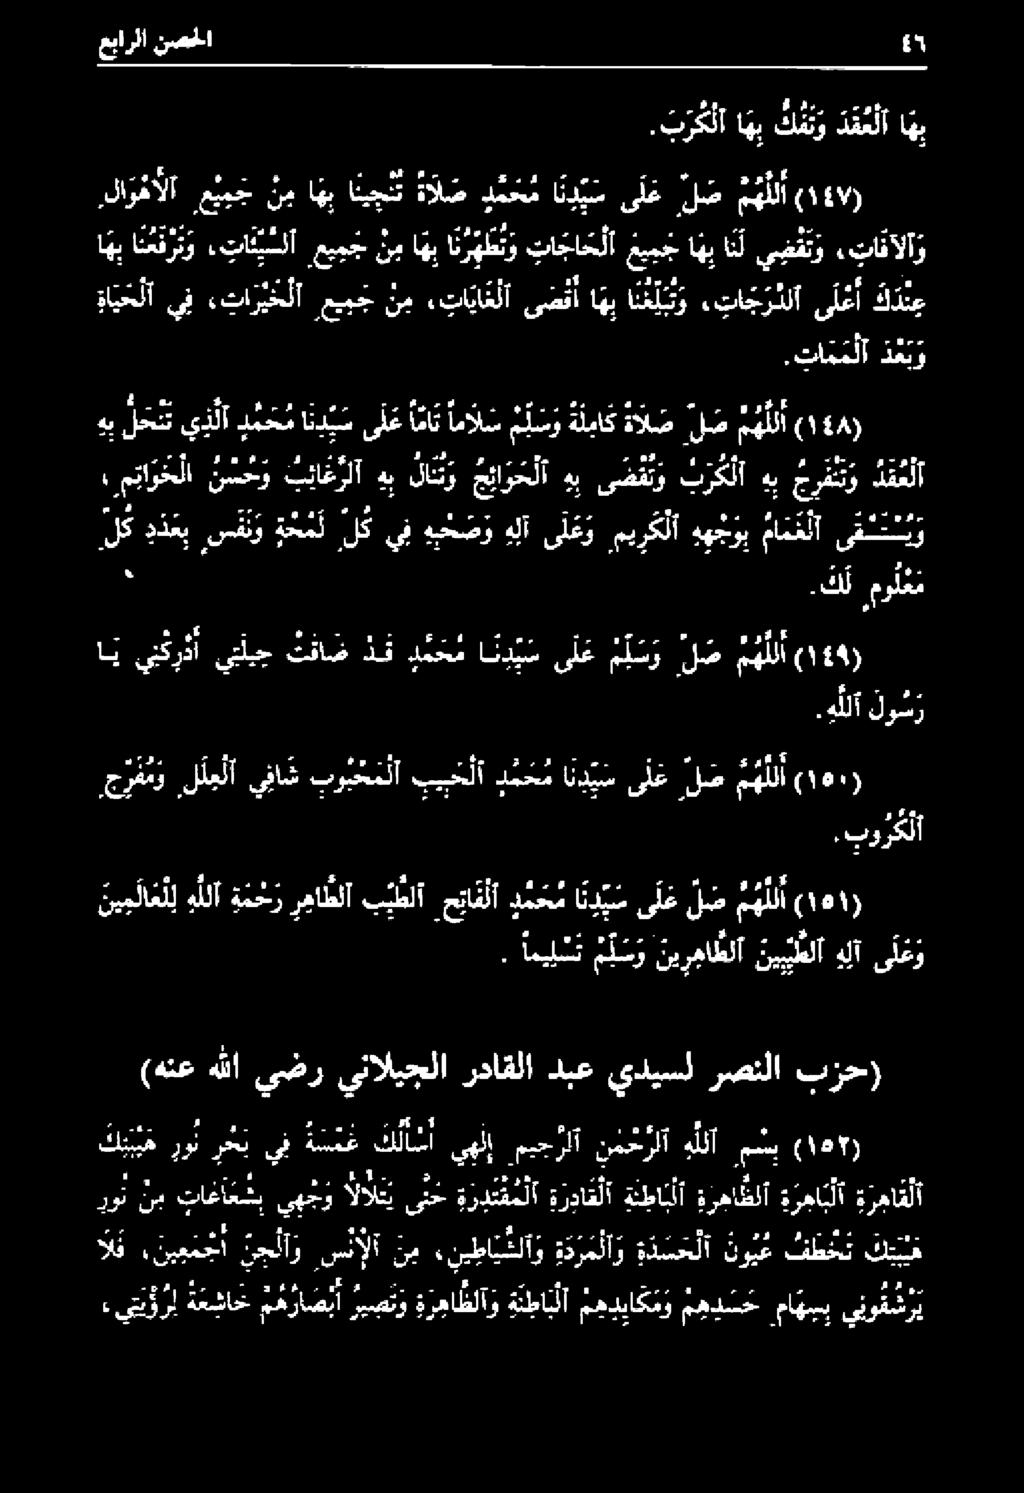 ٤٦ الحصن الرابع
بِهَا ٱلْعُقَدَ وَتَفُكُّ بِهَا ٱلْكُرَبَ.
(١٤٧) أَللَّهُمَّ صَلِّ عَلَى سَيِّدِنَا مُحَمَّدٍ صَلاَةً تُنْجِينَا بِهَا مِنْ جَمِيعِ ٱلأَهْوَالِ
وَٱلآفَاتِ، وَتَقْضِي لَنَا بِهَا جَمِيعَ ٱلْحَاجَاتِ وَتُطَهِّرُنَا بِهَا مِنْ جَمِيعِ ٱلسَّيِّئَاتِ، وَتَرْفَعُنَا بِهَا
عِنْدَكَ أَعْلَى ٱلدَّرَجَاتِ، وَتُبَلِّغُنَا بِهَا أَقْصَى ٱلْغَايَاتِ، مِنْ جَمِيعِ ٱلْخَيْرَاتِ، فِي ٱلْحَيَاةِ
وَبَعْدَ ٱلْمَمَاتِ.
(١٤٨) أَللَّهُمَّ صَلِّ صَلاَةً كَامِلَةً وَسَلِّمْ سَلاَماً تَامّاً عَلَى سَيِّدِنَا مُحَمَّدٍ ٱلَّذِي تَنْحَلُّ بِهِ
ٱلْعُقَدُ وَتَنْفَرِجُ بِهِ ٱلْكُرَبُ وَتُقْضَى بِهِ ٱلْحَوَائِجُ وَتُنَالُ بِهِ ٱلرَّغَائِبُ وَحُسْنُ ٱلْخَوَاتِمِ،
وَيُسْتَسْقَى ٱلْغَمَامُ بِوَجْهِهِ ٱلْكَرِيمِ وَعَلَى آلِهِ وَصَحْبِهِ فِي كُلِّ لَمْحَةٍ وَنَفَسٍ بِعَدَدِ كُلِّ
مَعْلُومٍ لَكَ.
(١٤٩) أَللَّهُمَّ صَلِّ وَسَلِّمْ عَلَى سَيِّدِنَا مُحَمَّدٍ قَدْ ضَاقَتْ حِيلَتِي أَدْرِكْنِي يَا
رَسُولَ ٱللَّهِ.
(١٥٠) أَللَّهُمَّ صَلِّ عَلَى سَيِّدِنَا مُحَمَّدٍ ٱلْحَبِيبِ ٱلْمَحْبُوبِ شَافِي ٱلْعِلَلِ وَمُفَرِّجِ
ٱلْكُرُوبِ.
(١٥١) أَللَّهُمَّ صَلِّ عَلَى سَيِّدِنَا مُحَمَّدٍ ٱلْفَاتِحِ ٱلطَّيِّبِ ٱلطَّاهِرِ رَحْمَةِ ٱللَّهِ لِلْعَالَمِينَ
وَعَلَى آلِهِ ٱلطَّيِّبِينَ ٱلطَّاهِرِينَ وَسَلِّمْ تَسْلِيماً.
(حزب النصر لسيدي عبد القادر الجيلاني رضي الله عنه)
(١٥٢) بِسْمِ ٱللَّهِ ٱلرَّحْمٰنِ ٱلرَّحِيمِ إِلٰهِي أَسْأَلُكَ غَمْسَةً فِي بَحْرِ نُورِ هَيْبَتِكَ
ٱلْقَاهِرَةِ ٱلْبَاهِرَةِ ٱلظَّاهِرَةِ ٱلْبَاطِنَةِ ٱلْقَادِرَةِ ٱلْمُقْتَدِرَةِ حَتَّى يَتَلأْلأَ وَجْهِي بِشُعَاعَاتٍ مِنْ نُورِ
هَيْبَتِكَ تَخْطَفُ عُيُونَ ٱلْحَسَدَةِ وَٱلْمَرَدَةِ وَٱلشَّيَاطِينِ، مِنَ ٱلإِنْسِ وَٱلْجِنِّ أَجْمَعِينَ، فَلاَ
يَرْشُقُونِي بِسِهَامِ حَسَدِهِمْ وَمَكَايِدِهِمْ ٱلْبَاطِنَةِ وَٱلظَّاهِرَةِ وَتَصِيرُ أَبْصَارُهُمْ خَاشِعَةً لِرُؤْيَتِي،